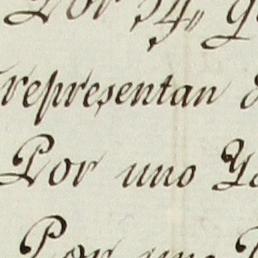 Por 34,,
representan
Por uno
Por uno